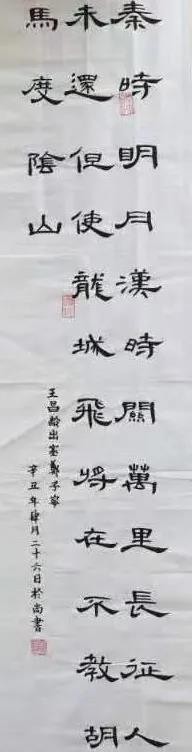 秦時明月漢時關萬里長征人
未還但使龍城飛将在不教胡
馬度陰山
王昌齡出塞
辛丑年肆月二十六日於尚書